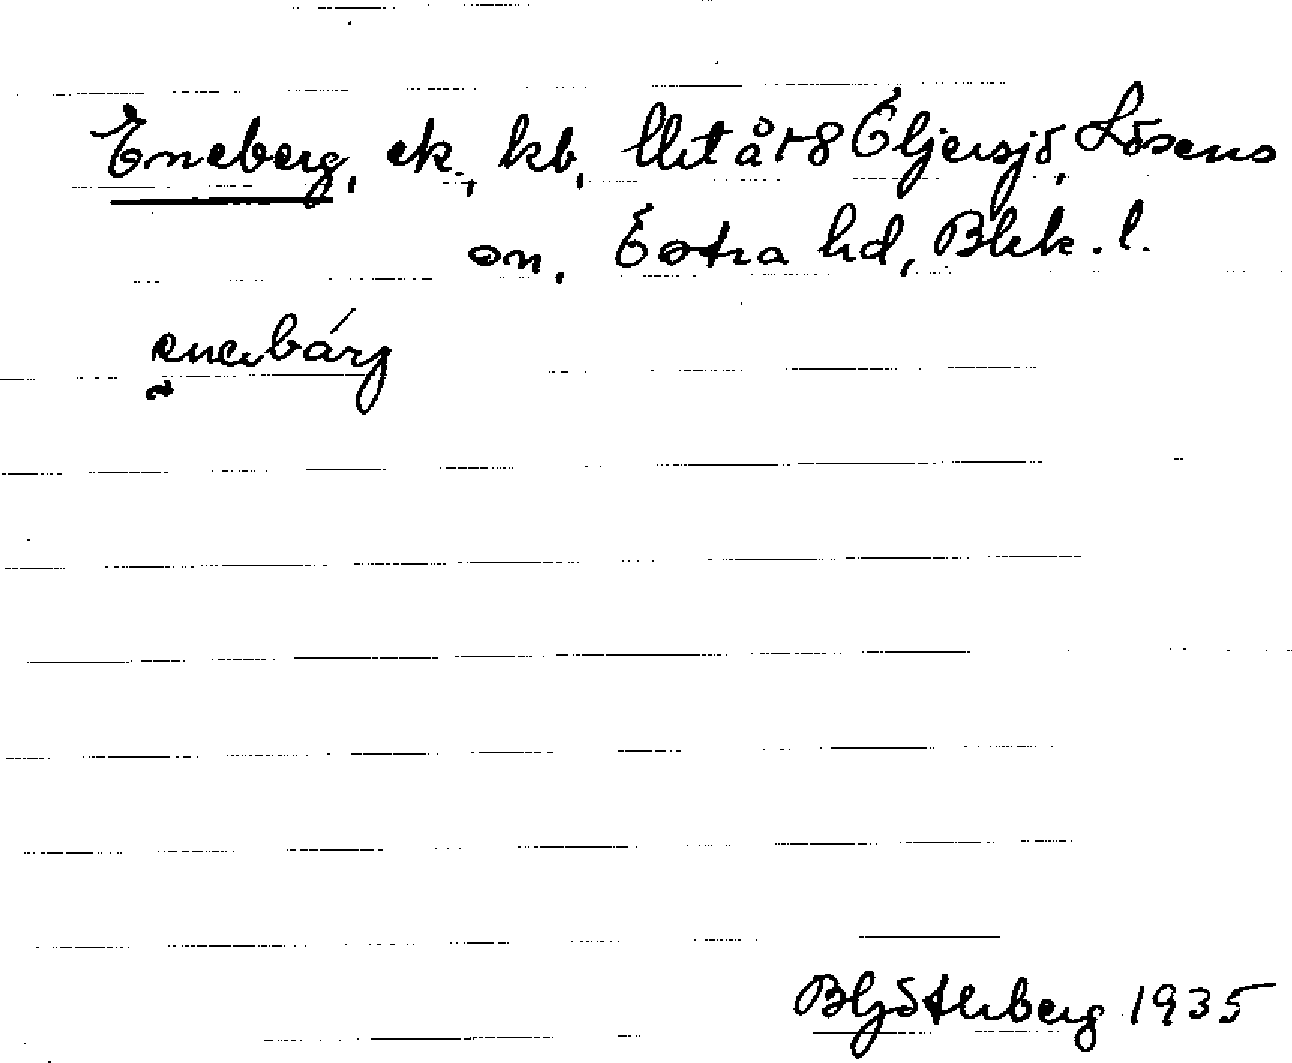 Eneberg, ek., kb, Utt å 1-8 Eljersjö, Lösens
sn. Östra hd, Blek. l.
enebárg
BGötlberg 1935